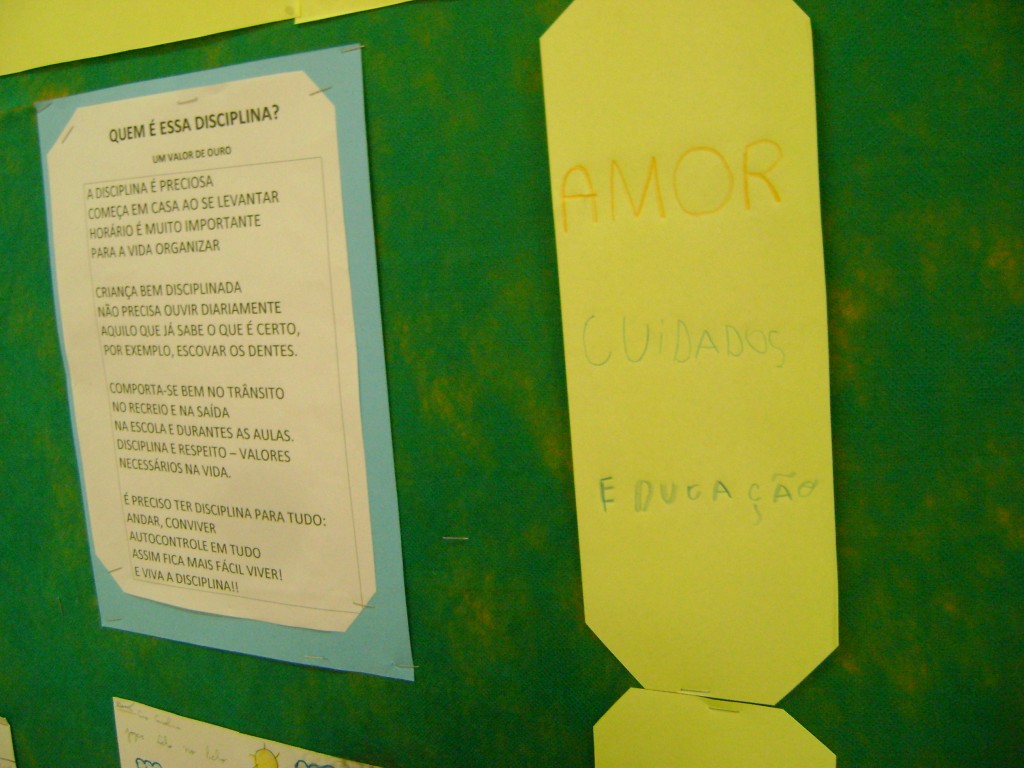 QUEM É ESSA DISCIPLINA?
UM VALOR DE OURO
A DISCIPLINA É PRECIOSA
COMEÇA EM CASA AO SE LEVANTAR
HORÁRIO É MUITO IMPORTANTE
PARA A VIDA ORGANIZAR
CRIANÇA BEM DISCIPLINADA
NÃO PRECISA OUVIR DIARIAMENTE
AQUILO QUE JÁ SABE O QUE É CERTO,
POR EXEMPLO, ESCOVAR OS DENTES.
COMPORTA-SE BEM NO TRÂNSITO
NO RECREIO E NA SAÍDA
NA ESCOLA E DURANTES AS AULAS.
DISCIPLINA E RESPEITO – VALORES
NECESSÁRIOS NA VIDA.
É PRECISO TER DISCIPLINA PARA TUDO:
ANDAR, CONVIVER
AUTOCONTROLE EM TUDO
ASSIM FICA MAIS FÁCIL VIVER!
E VIVA A DISCIPLINA!!
AMOR
CUIDADOS
EDUCAÇÃO